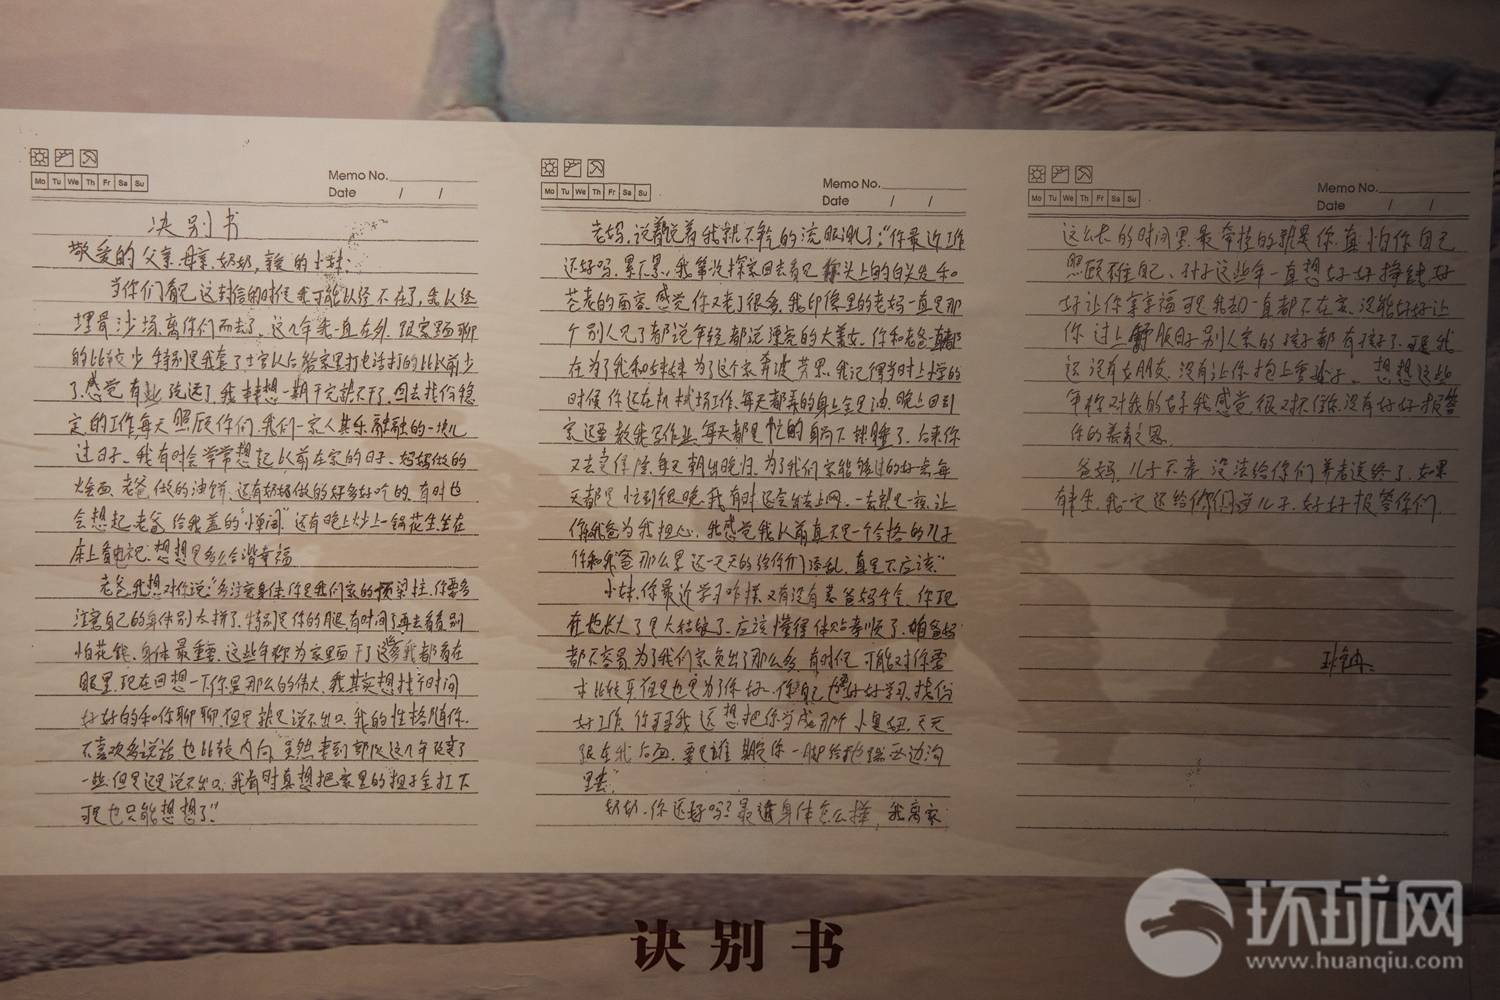 Mo Tu We Th Fr Sa Su
Memo No.
Date / /
决别书
敬爱的父亲、母亲、奶奶，亲爱的小妹：
当你们看见这封信的时候我可能以经不在了，我以经
埋骨沙场，离你们而去了，这几年我一直在外，跟家里面聊
的比较少，特别是我套了士官以后给家里打电话打的比以前少
了，感觉有些疏远了，我本想一期干完就不干了，回去找份稳
定的工作，每天照顾你们，我们一家人其乐融融的一块儿
过日子，我有时会常常想起以前在家的日子，妈妈做的
烩面，老爸做的油饼，还有奶奶做的好多好吃的，有时也
会想起老爸给我盖的“小单间”还有晚上炒上一锅花生，坐在
床上看电视，想想是多么合谐幸福
老爸，我想对你说：“多注意身体，你是我们家的顶梁柱，你要多
注意自己的身体别太拼了，特别是你的腿，有时间了再去看看，别
怕花钱，身体最重要，这些年称为家里面干了这多我都看在
眼里，现在回想一下你是那么的伟大，我其实想找个时间
好好的和你聊聊，但是就是说不出口，我的性格随你，
不喜欢多说话，也比较内向，虽然来到部队这几年改变了
一些，但是还是说不出口，我有时真想把家里的担子全扛下
可是也只能想想了”
Mo Tu We Th Fr Sa Su
Memo No.
Date / /
老妈，说着说着我就不争的流眼泪了：“你最近工作
还好吗，累不累，我第一次探家回去看见你头上的白头发和
苍老的面容，感觉你又老了很多，我印像里的老妈一直是那
个别人见了都说年轻都说漂亮的大美女，你和老爸一直都
在为了我和妹妹为了这个家奔波劳累，我记得当时上学的
时候你还在机械场工作，每天都弄的身上全是油，晚上回到
家还要教我写作业，每天都是忙的
又去卖保险，每天朝出晚归，为了我们家能够过的好些每
天都是忙到很晚，我有时还会去上网，一去就是一夜，让
你和我爸为我担心，我感觉我以前真不是一个合格的儿子
你和我爸那么累还一天天的给你们添乱，真是不应该”
小妹，你最近学习咋样，又有没有惹爸妈生气，你现
在也长大了是大姑娘了，应该懂得体贴孝顺了，咱爸妈
都不容易，为了我们家负出了那么多，有时候可能对你要
求比较严但是也是为了你好，你自己也要好好学习，找份
好工作，你哥哥我还想把你当成那个小臭妞，天天
跟在我后面，要是谁欺负你一脚给他踹函边沟
里去”
奶奶，你还好吗？最近身体怎么样，我离家
Mo Tu We Th Fr Sa Su
Memo No.
Date / /
这么长的时间里最牵挂的就是你，真怕你自己
照顾不住自己，孙子这些年一直想好好挣钱，好
好让你享享福可是我却一直都不在家，没能好好让
你过上舒服日子，别人家的孩子都有孩子了，可是我
还没有女朋友，没有让你抱上重孙子，想想这些
年你对我的好，我感觉很对不住你，没有好好报答
你的养育之恩
爸妈，儿子不孝，没法给你们养老送终了，如果
有来生，我一定还给你们当儿子，好好报答你们
诀别书
环球网
www.huanqiu.com